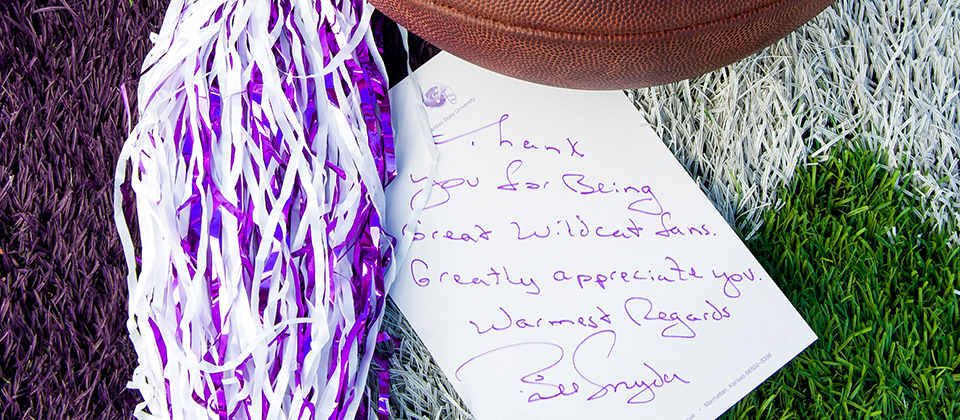 State University
Thank
you for Being
Great Wildcat fans.
Greatly appreciate you.
Warmest Regards
Bill Snyder
Manhattan, Kansas 66502-3355